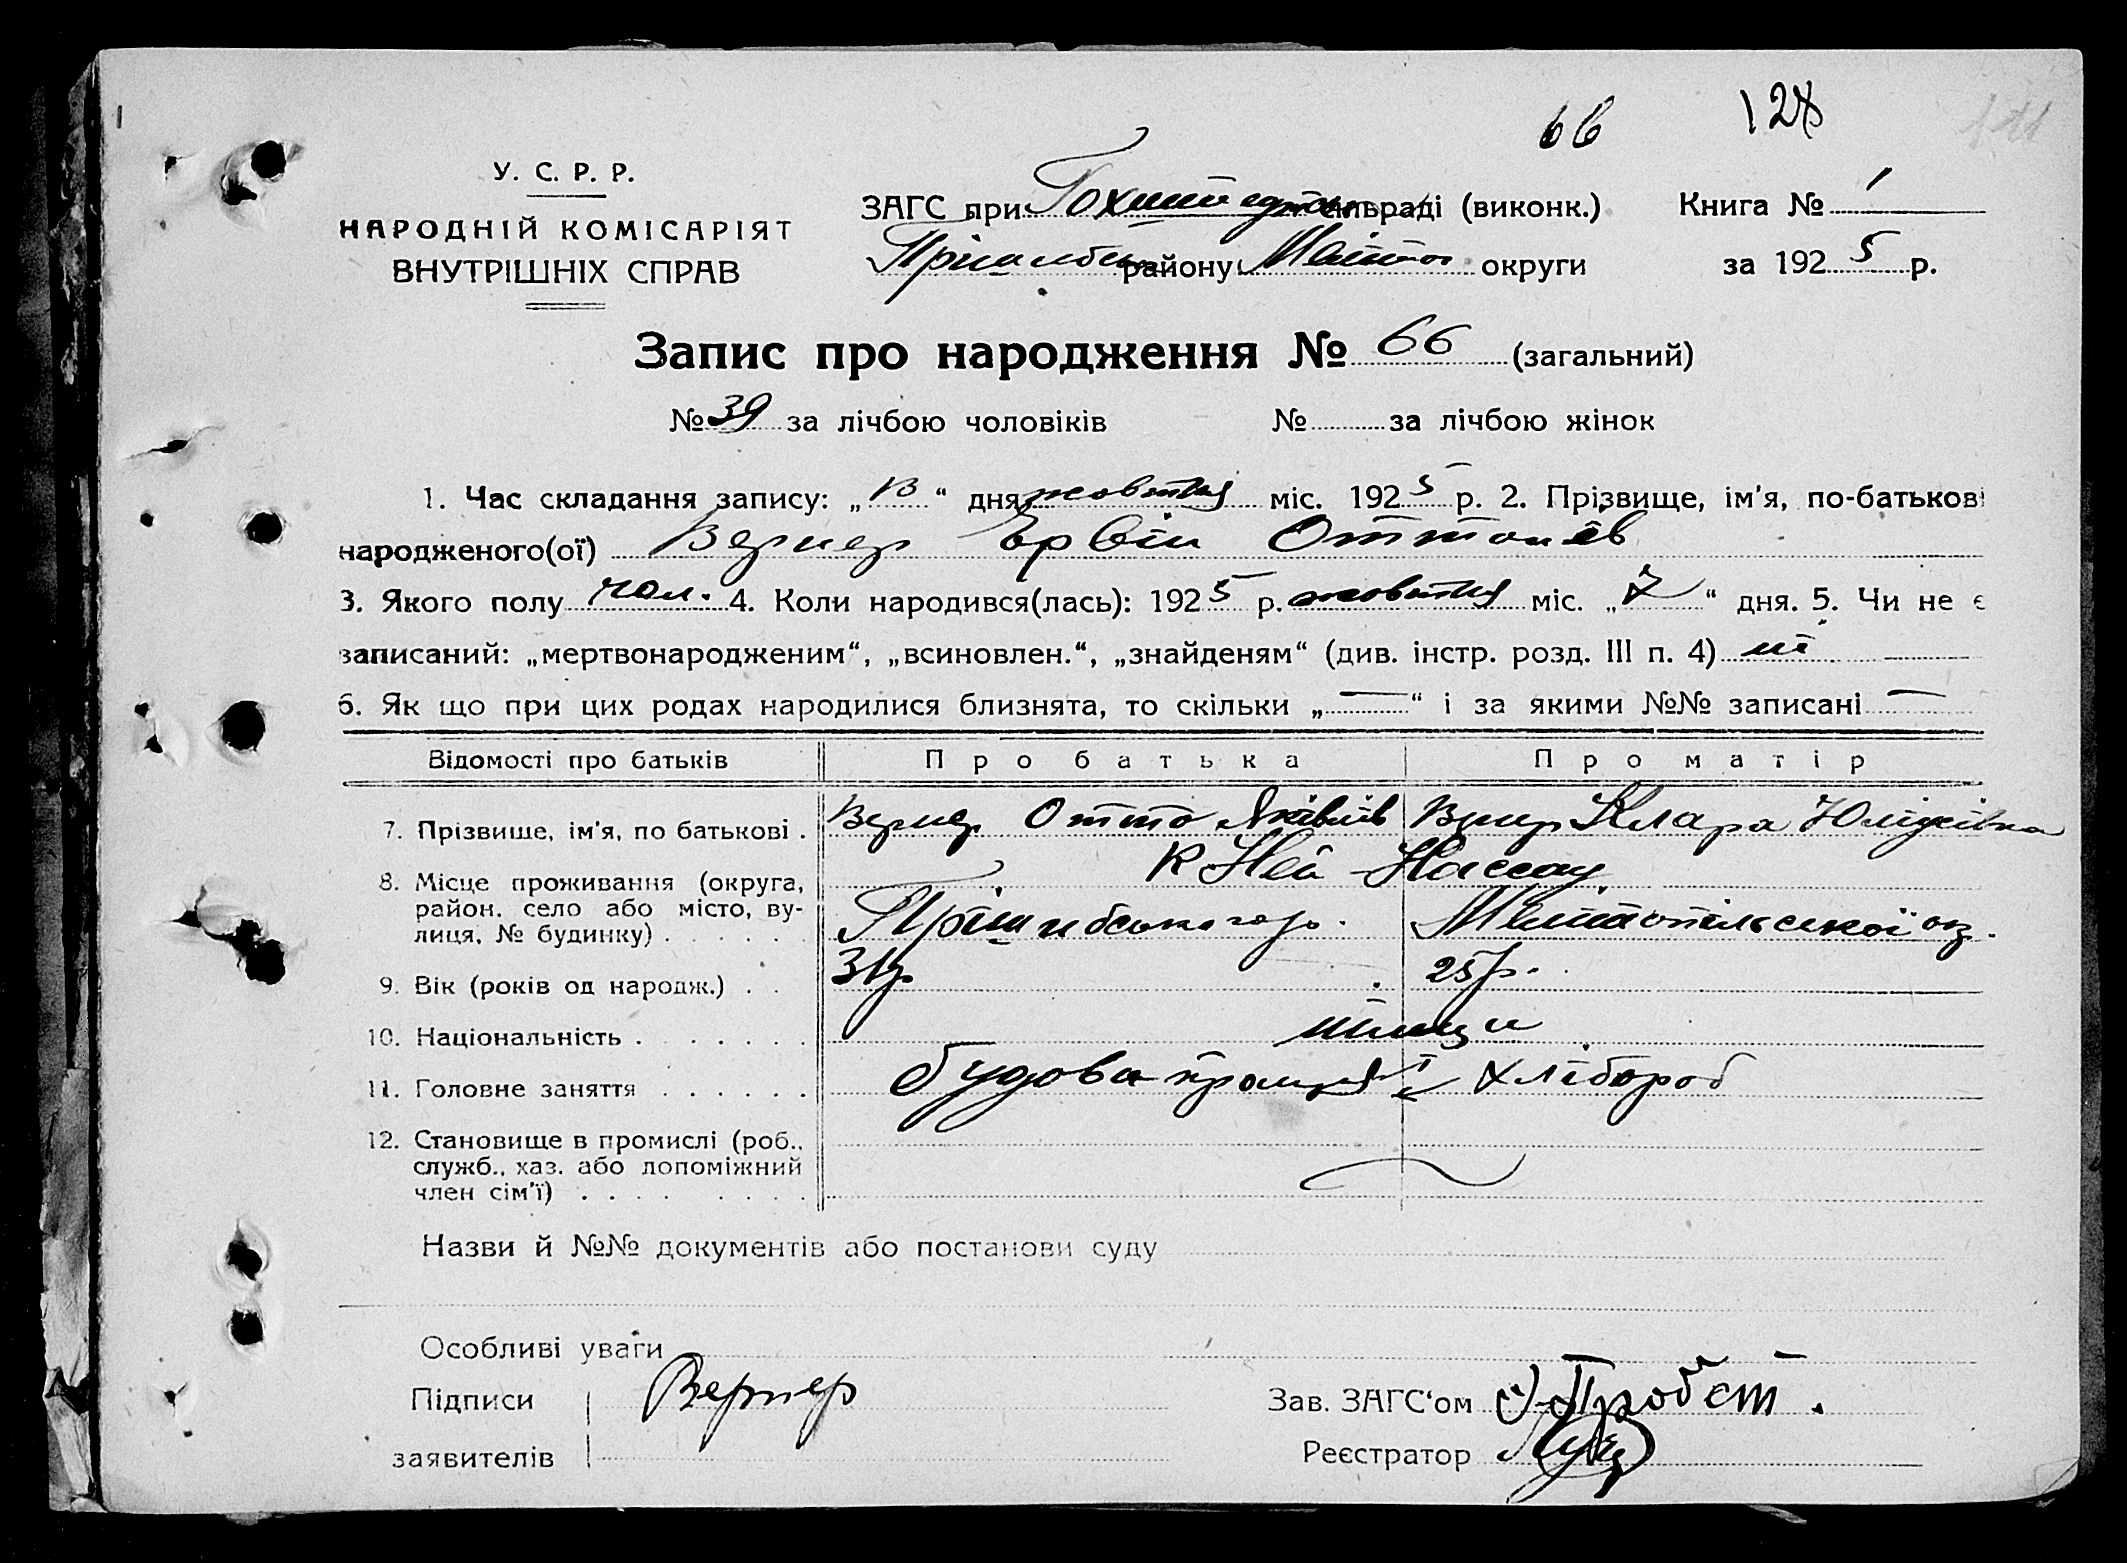 66 128
У. С. Р. Р.
НАРОДНІЙ КОМІСАРІЯТ
ВНУТРІШНІХ СПРАВ
ЗАГС при Гохштедтск сільраді (виконк.) Книга № 1
Пришибськ району Меліт. округи за 1925 р.
Запис про народження № 66 (загальний)
№ 39 за лічбою чоловіків № за лічбою жінок
1. Час складання запису: „13“ дня жовтня міс. 1925 р. 2. Прізвище, ім'я, по-батькові
народженого(ої) Вернер Ервін Оттонів
3. Якого полу чол. 4. Коли народився(лась): 1925 р. жовтня міс. „7“ дня. 5. Чи не є
записаний: „мертвонародженим“, „всиновлен.“, „знайденям“ (див. інстр. розд. III п. 4) ні
6. Як що при цих родах народилися близнята, то скільки „—“ і за якими №№ записані —
Відомості про батьків Про батька Про матір
7. Прізвище, ім'я, по батькові . Вернер Отто Яковів Вернер Клара
8. Місце проживання (округа, К Ней-Нассау
район, село або місто, ву-
лиця, № будинку) . . . . . . Пришибського р. Мелітопільської ок.
9. Вік (років од народж.) . . 31 р 25 р.
10. Національність . . . . . . . німці
11. Головне заняття . . . . . . хлібороб
12. Становище в промислі (роб.,
служб., хаз. або допоміжний
член сім'ї) . . . . . . . .
Назви й №№ документів або постанови суду
Особливі уваги
Підписи Вернер Зав. ЗАГС'ом Пробст.
заявителів Реєстратор